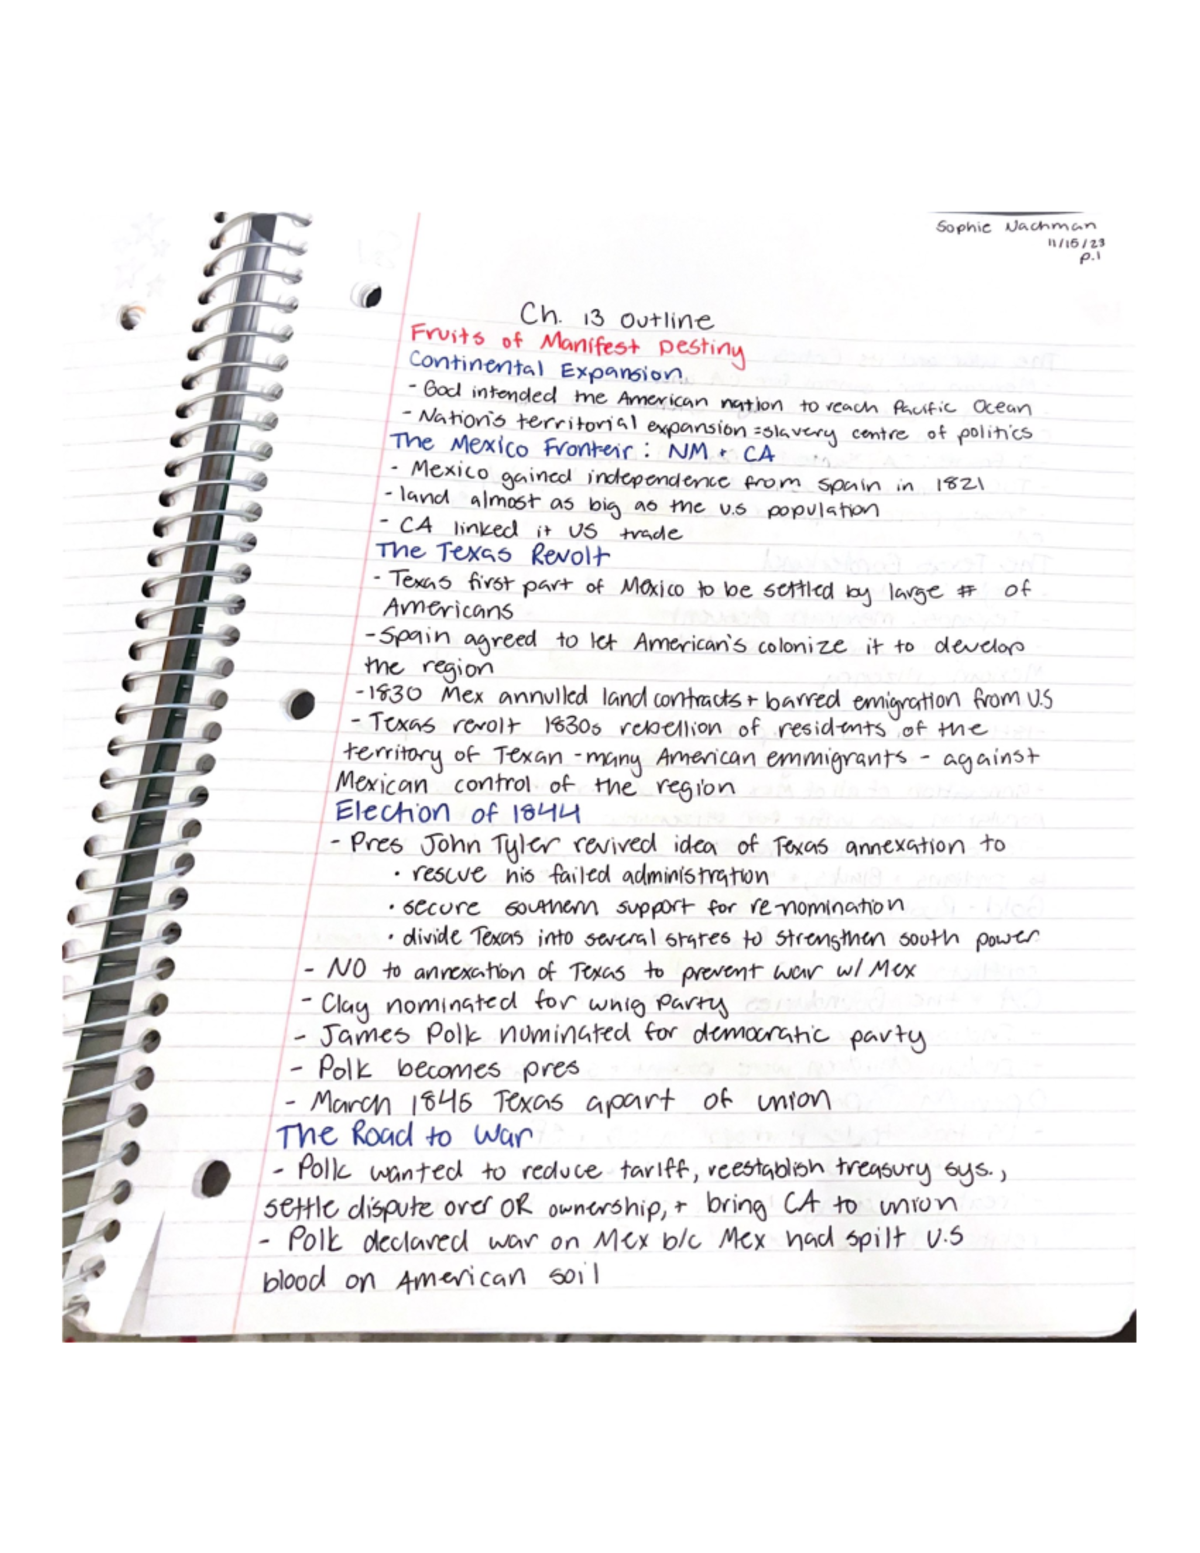 Sophie Nachman
11/15/23
p.1
Ch. 13 Outline
Fruits of Manifest Destiny
Continental Expansion
- God intended the American nation to reach Pacific Ocean
- Nation's territorial expansion = slavery centre of politics
The Mexico Fronteir : NM + CA
- Mexico gained independence from Spain in 1821
- land almost as big as the U.S population
- CA linked it US trade
The Texas Revolt
- Texas first part of Mexico to be settled by large # of
Americans
- Spain agreed to let American's colonize it to develop
the region
- 1830 Mex annulled land contracts + barred emigration from U.S
- Texas revolt 1830s rebellion of residents of the
territory of Texan - many American emmigrants - against
Mexican control of the region
Election of 1844
- Pres John Tyler revived idea of Texas annexation to
• rescue his failed administration
• secure southern support for re-nomination
• divide Texas into several states to strengthen south power
- NO to annexation of Texas to prevent war w/ Mex
- Clay nominated for whig party
- James Polk nominated for democratic party
- Polk becomes pres
- March 1845 Texas apart of union
The Road to War
- Polk wanted to reduce tariff, reestablish treasury sys.,
settle dispute over OR ownership, + bring CA to union
- Polk declared war on Mex b/c Mex had spilt U.S
blood on American soil